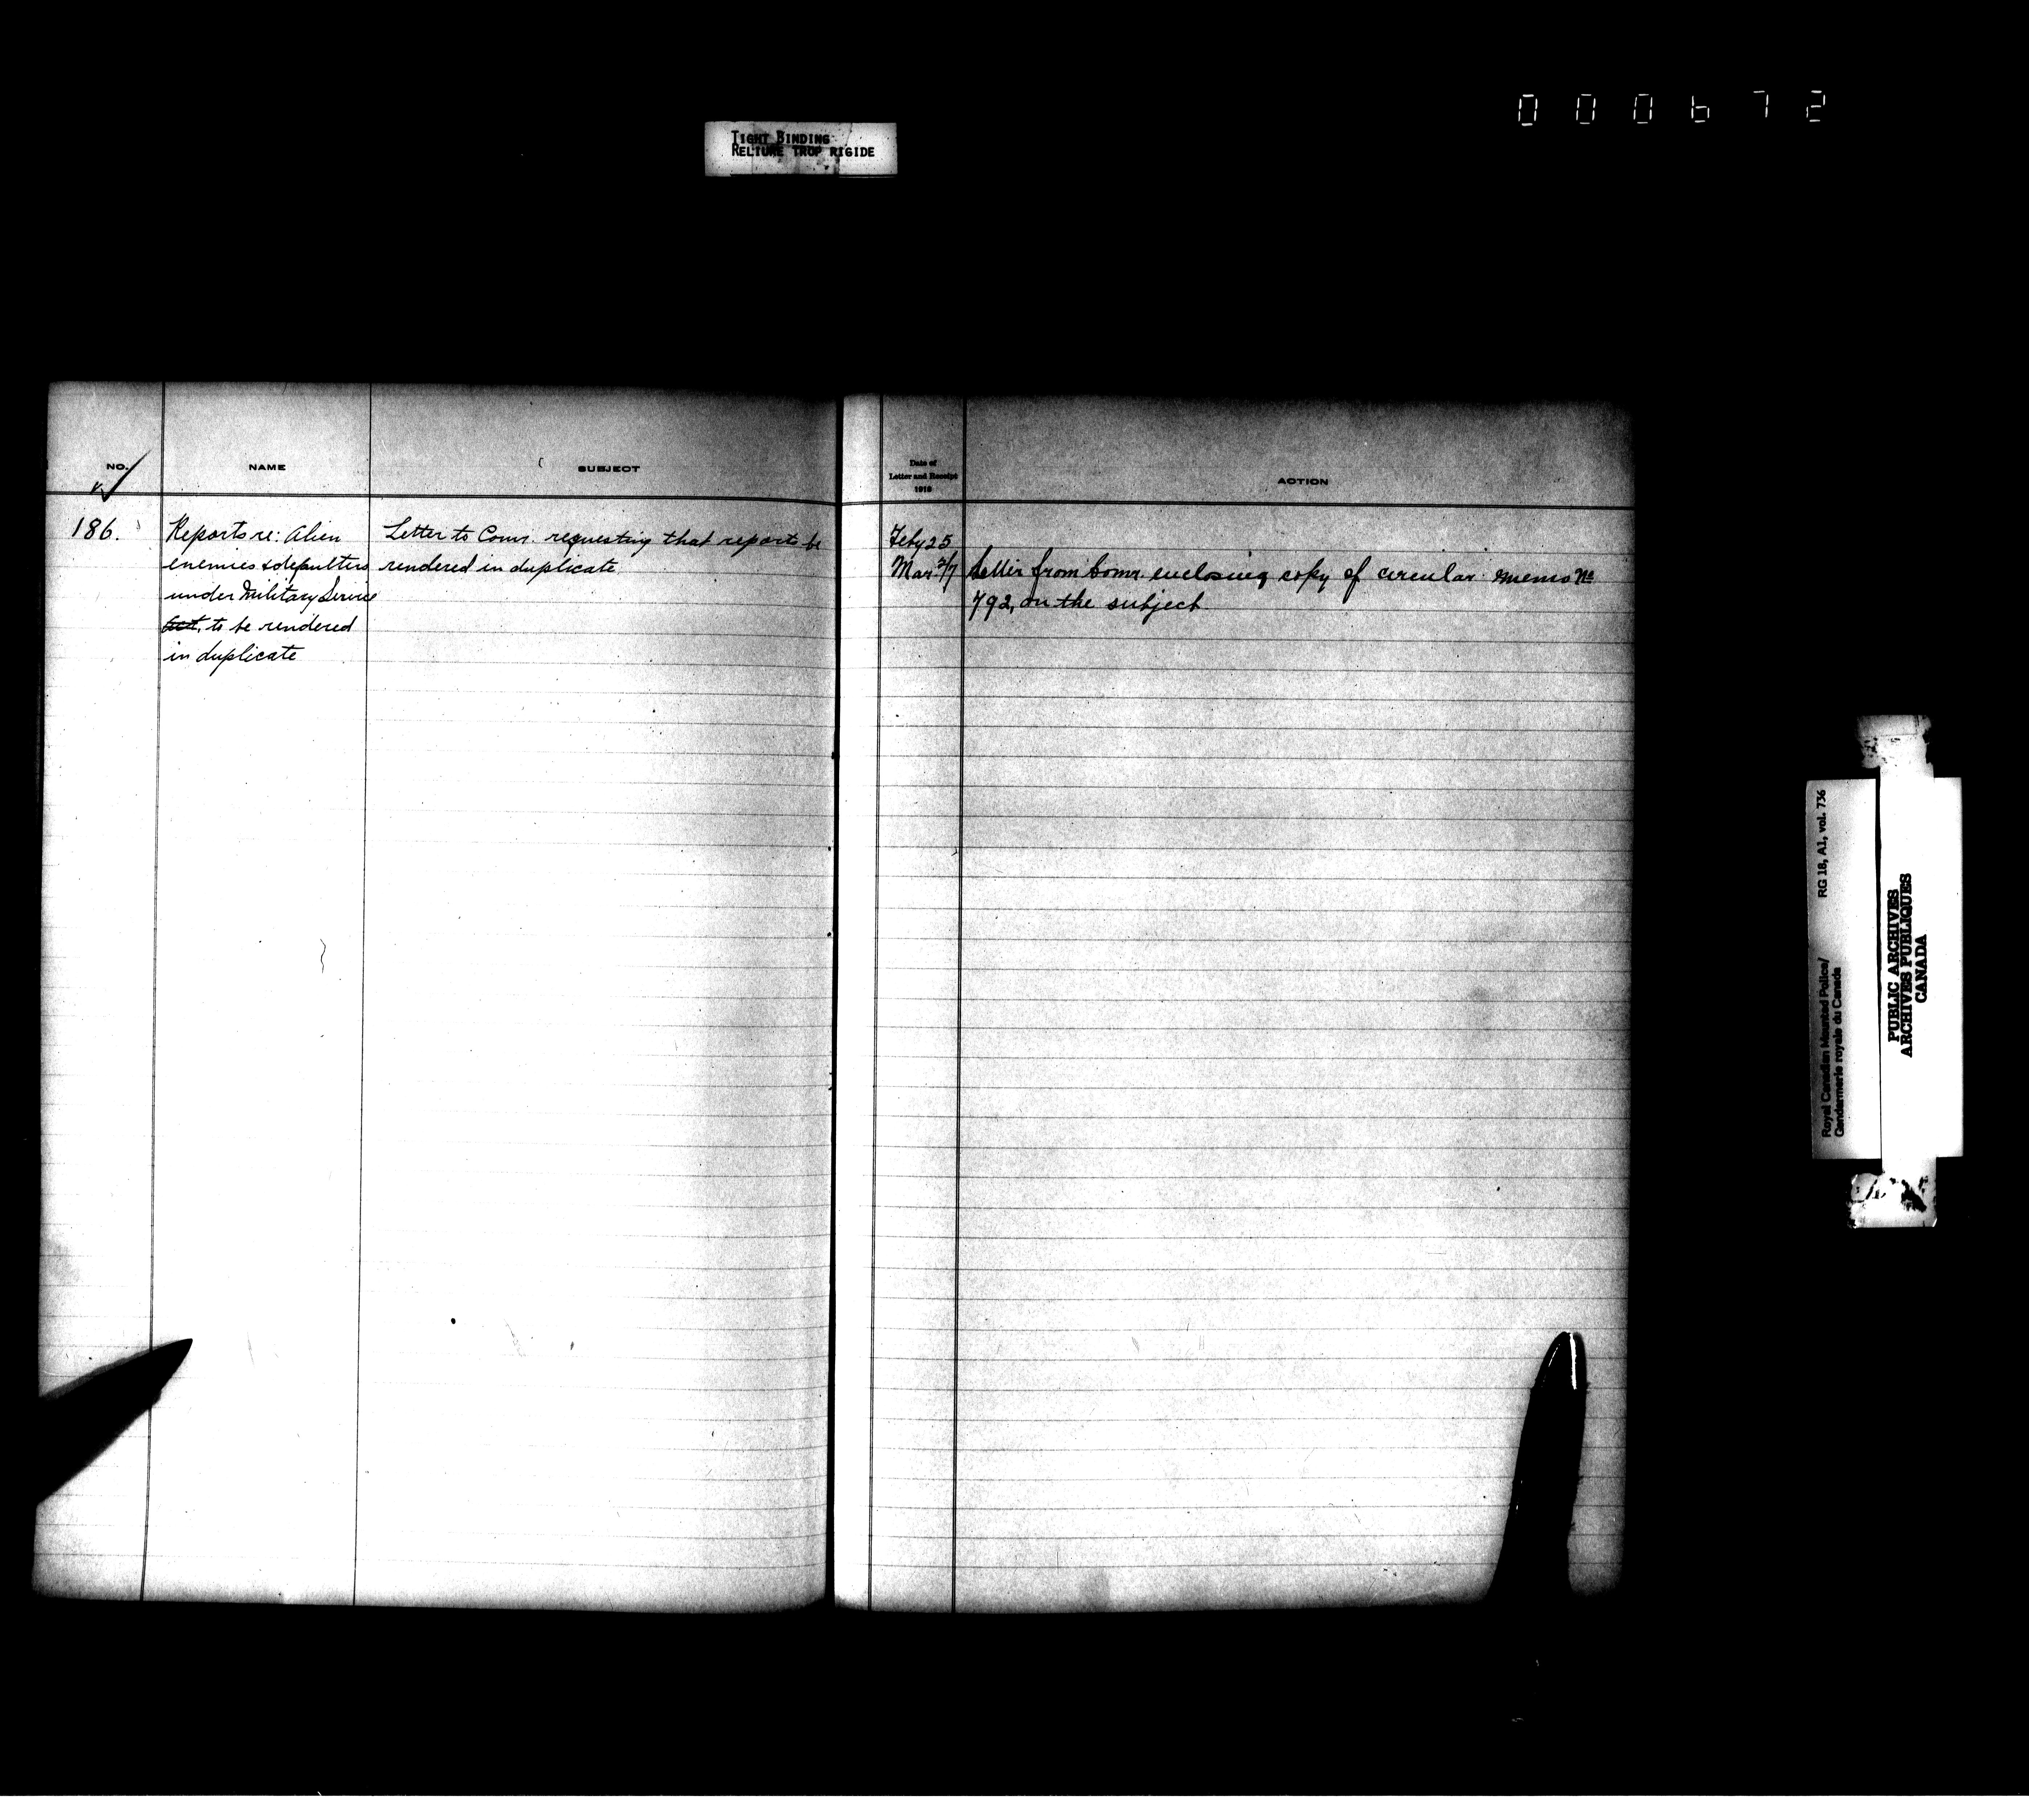 000672
TIGHT BINDING
RELIURE TROP RIGIDE
NO.
NAME
SUBJECT
186.
Reports re: Alien
enemies & defaulters
under Military Service
Act, to be rendered
in duplicate
Letter to Comr. requesting that reports be
rendered in duplicate
Date of
Letter and Receipt
1918
ACTION
Feby 25
Mar 2/7 Letter from Comr. enclosing copy of circular memo No
792, on the subject
Royal Canadian Mounted Police/ RG 18, A1, vol. 736
Gendarmerie royale du Canada
PUBLIC ARCHIVES
ARCHIVES PUBLIQUES
CANADA